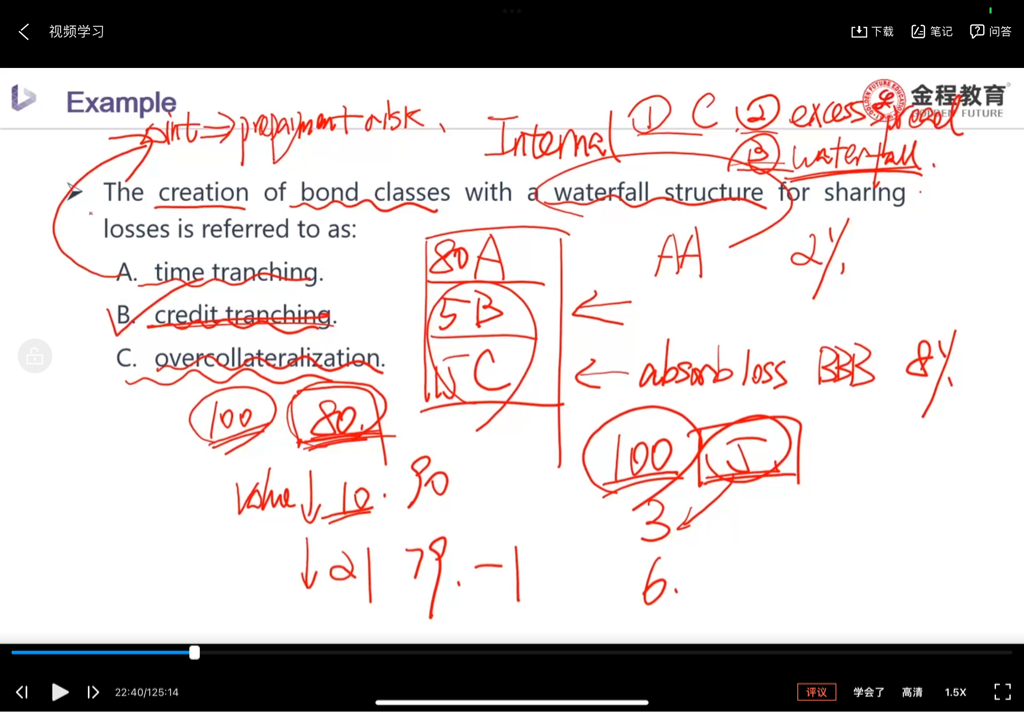 视频学习
下载 笔记 问答
Example
金程教育
→ point → prepayment risk.
Internal ① C ② excess spread
③ waterfall.
The creation of bond classes with a waterfall structure for sharing
losses is referred to as:
A. time tranching.
B. credit tranching.
C. overcollateralization.
80 A
5 B
15 C
AA 2%
← absorb loss BBB 8%
100 80.
100 5
value ↓ 10. 90
3
↓ 21 79. -1
6.
22:40/125:14
评议 学会了 高清 1.5X